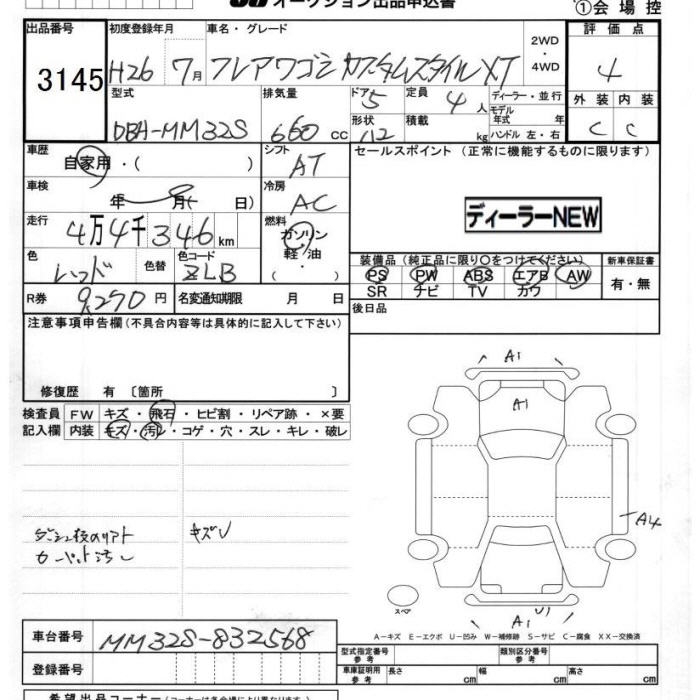 オークション出品申込書
①会場控
出品番号 初度登録年月 車名・グレード 2WD 4WD 評価点
3145 H26 7月 フレアワゴン カスタムスタイル XT 4
型式 排気量 ドア 定員 ディーラー・並行 外装 内装
5 4人 モデル年式 年
DBA-MM32S 660cc 形状 積載 kg ハンドル 左・右 C C
車歴 シフト セールスポイント (正常に機能するものに限ります)
自家用・( ) AT
車検 年 月( 日) 冷房 AC
ディーラーNEW
走行 4万4千346km 燃料 ガソリン
軽油
・( )
色 色替 色コード 装備品 (純正品に限り〇をつけてください) 新車保証書
レッド ZLB PS PW ABS エアB AW 有・無
SR ナビ TV カワ
R券 9,270円 名変通知期限 月 日
後日品
注意事項申告欄 (不具合内容等は具体的に記入して下さい)
修復歴 有 〔箇所 〕
検査員 FW キズ・飛石・ヒビ割・リペア跡・×要
記入欄 内装 キズ・汚レ・コゲ・穴・スレ・キレ・破レ
A1
A1
A4
キズU
カーペット汚レ
スペア
A1 U1
A-キズ E-エクボ U-凹み W-補修跡 S-サビ C-腐食 XX-交換済
車台番号 MM32S-832568
型式指定番号 参考 類別区分番号 参考
登録番号 車庫証明用 参考 長さ cm 幅 cm 高さ cm
希望出品コーナー (コーナーは各会場により異なります)